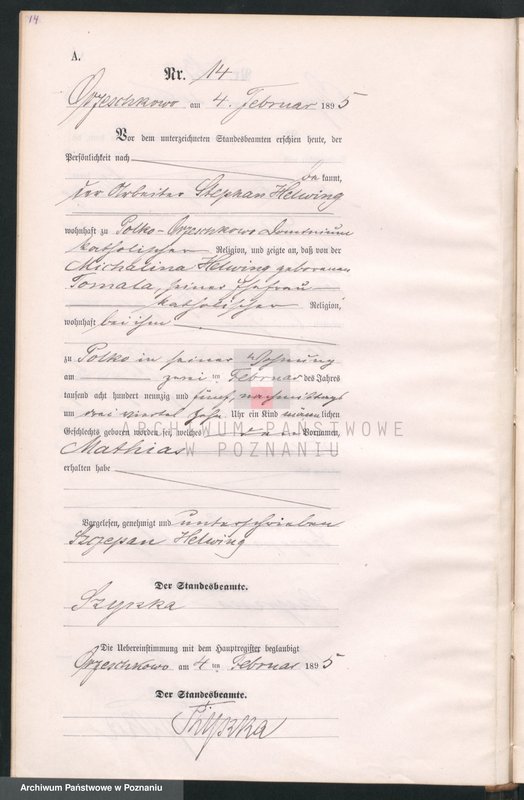 14
A.
Nr. 14
Orzeschkowo am 4. Februar 1895
Vor dem unterzeichneten Standesbeamten erschien heute, der
Persönlichkeit nach
bekannt,
der Arbeiter Stephan Helwing
wohnhaft zu Polko-Orzeschkowo Dominium
katholischer Religion, und zeigte an, daß von der
Michalina Helwing geborenen
Tomala, seiner Ehefrau
katholischer Religion,
wohnhaft bei ihm
zu Polko in seiner Wohnung
am zweiten Februar des Jahres
tausend acht hundert neunzig und fünf, nachmittags
um drei viertel Uhr ein Kind männlichen
Geschlechts geboren worden sei, welches den Vornamen
Mathias
erhalten habe
Vorgelesen, genehmigt und unterschrieben
Szczepan Helwing
Der Standesbeamte.
Szyszka
Die Uebereinstimmung mit dem Hauptregister beglaubigt
Orzeschkowo am 4ten Februar 1895
Der Standesbeamte.
Szyszka
ARCHIWUM PAŃSTWOWE
W POZNANIU
Archiwum Państwowe w Poznaniu